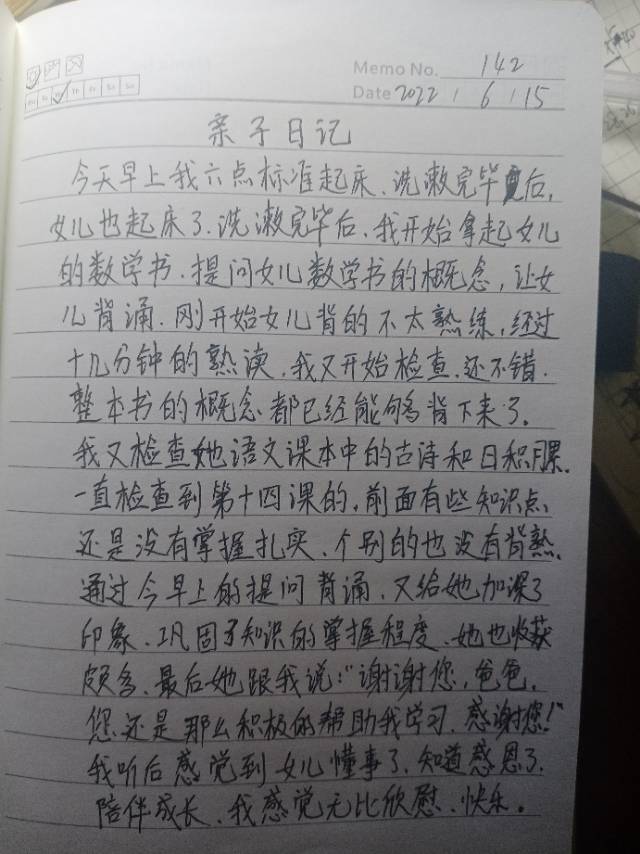 Memo No. 142
Date 2022 / 6 / 15
亲子日记
今天早上我六点标准起床、洗漱完毕后,
女儿也起床了.洗漱完毕后、我开始拿起女儿
的数学书.提问女儿数学书的概念,让女
儿背诵.刚开始女儿背的不太熟练,经过
十几分钟的熟读、我又开始检查.还不错.
整本书的概念都已经能够背下来了。
我又检查她语文课本中的古诗和日积月累.
一直检查到第十四课的,前面有些知识点、
还是没有掌握扎实、个别的也没有背熟、
通过今早上的提问背诵、又给她加深了
印象、巩固了知识的掌握程度、她也收获
颇多、最后她跟我说:"谢谢您,爸爸,
您还是那么积极的帮助我学习.感谢您!"
我听后感觉到女儿懂事了、知道感恩了、
陪伴成长、我感觉无比欣慰、快乐。